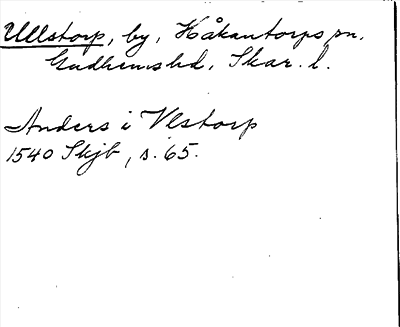 Ullstorp, by, Håkantorps sn.
Gudhems hd. Skar. l.
Anders i Vlstorp
1540 Skjb, s. 65.